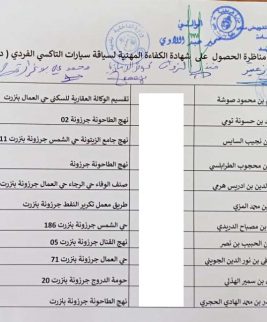 مناظرة الحصول على شهادة الكفاءة المهنية لسياقة سيارات التاكسي الفردي ( د
بن محمود صوشة تقسيم الوكالة العقارية للسكنى حي العمال بنزرت
بن حسونة تومي نهج الطاحونة جرزونة 02
بن نجيب السايس نهج جامع الزيتونة حي الشمس جرزونة بنزرت 11
بن محجوب الطرابلسي نهج الطاحونة جرزونة
الدين بن ادريس هرمي صنف الوفاء حي الرجاء حي العمال جرزونة بنزرت
بن محمد المزي طريق معمل تكرير النفط جرزونة بنزرت
بن مصباح الدريدي حي الشمس جرزونة بنزرت 186
بن الحبيب بن نصر نهج القتال جرزونة بنزرت 05
في بن نور الدين الجويني حي العمال جرزونة بنزرت 71
بن سمير الهذلي حومة الدروج جرزونة بنزرت 20
بن محمد الهادي الحجري نهج الطاحونة جرزونة بنزرت